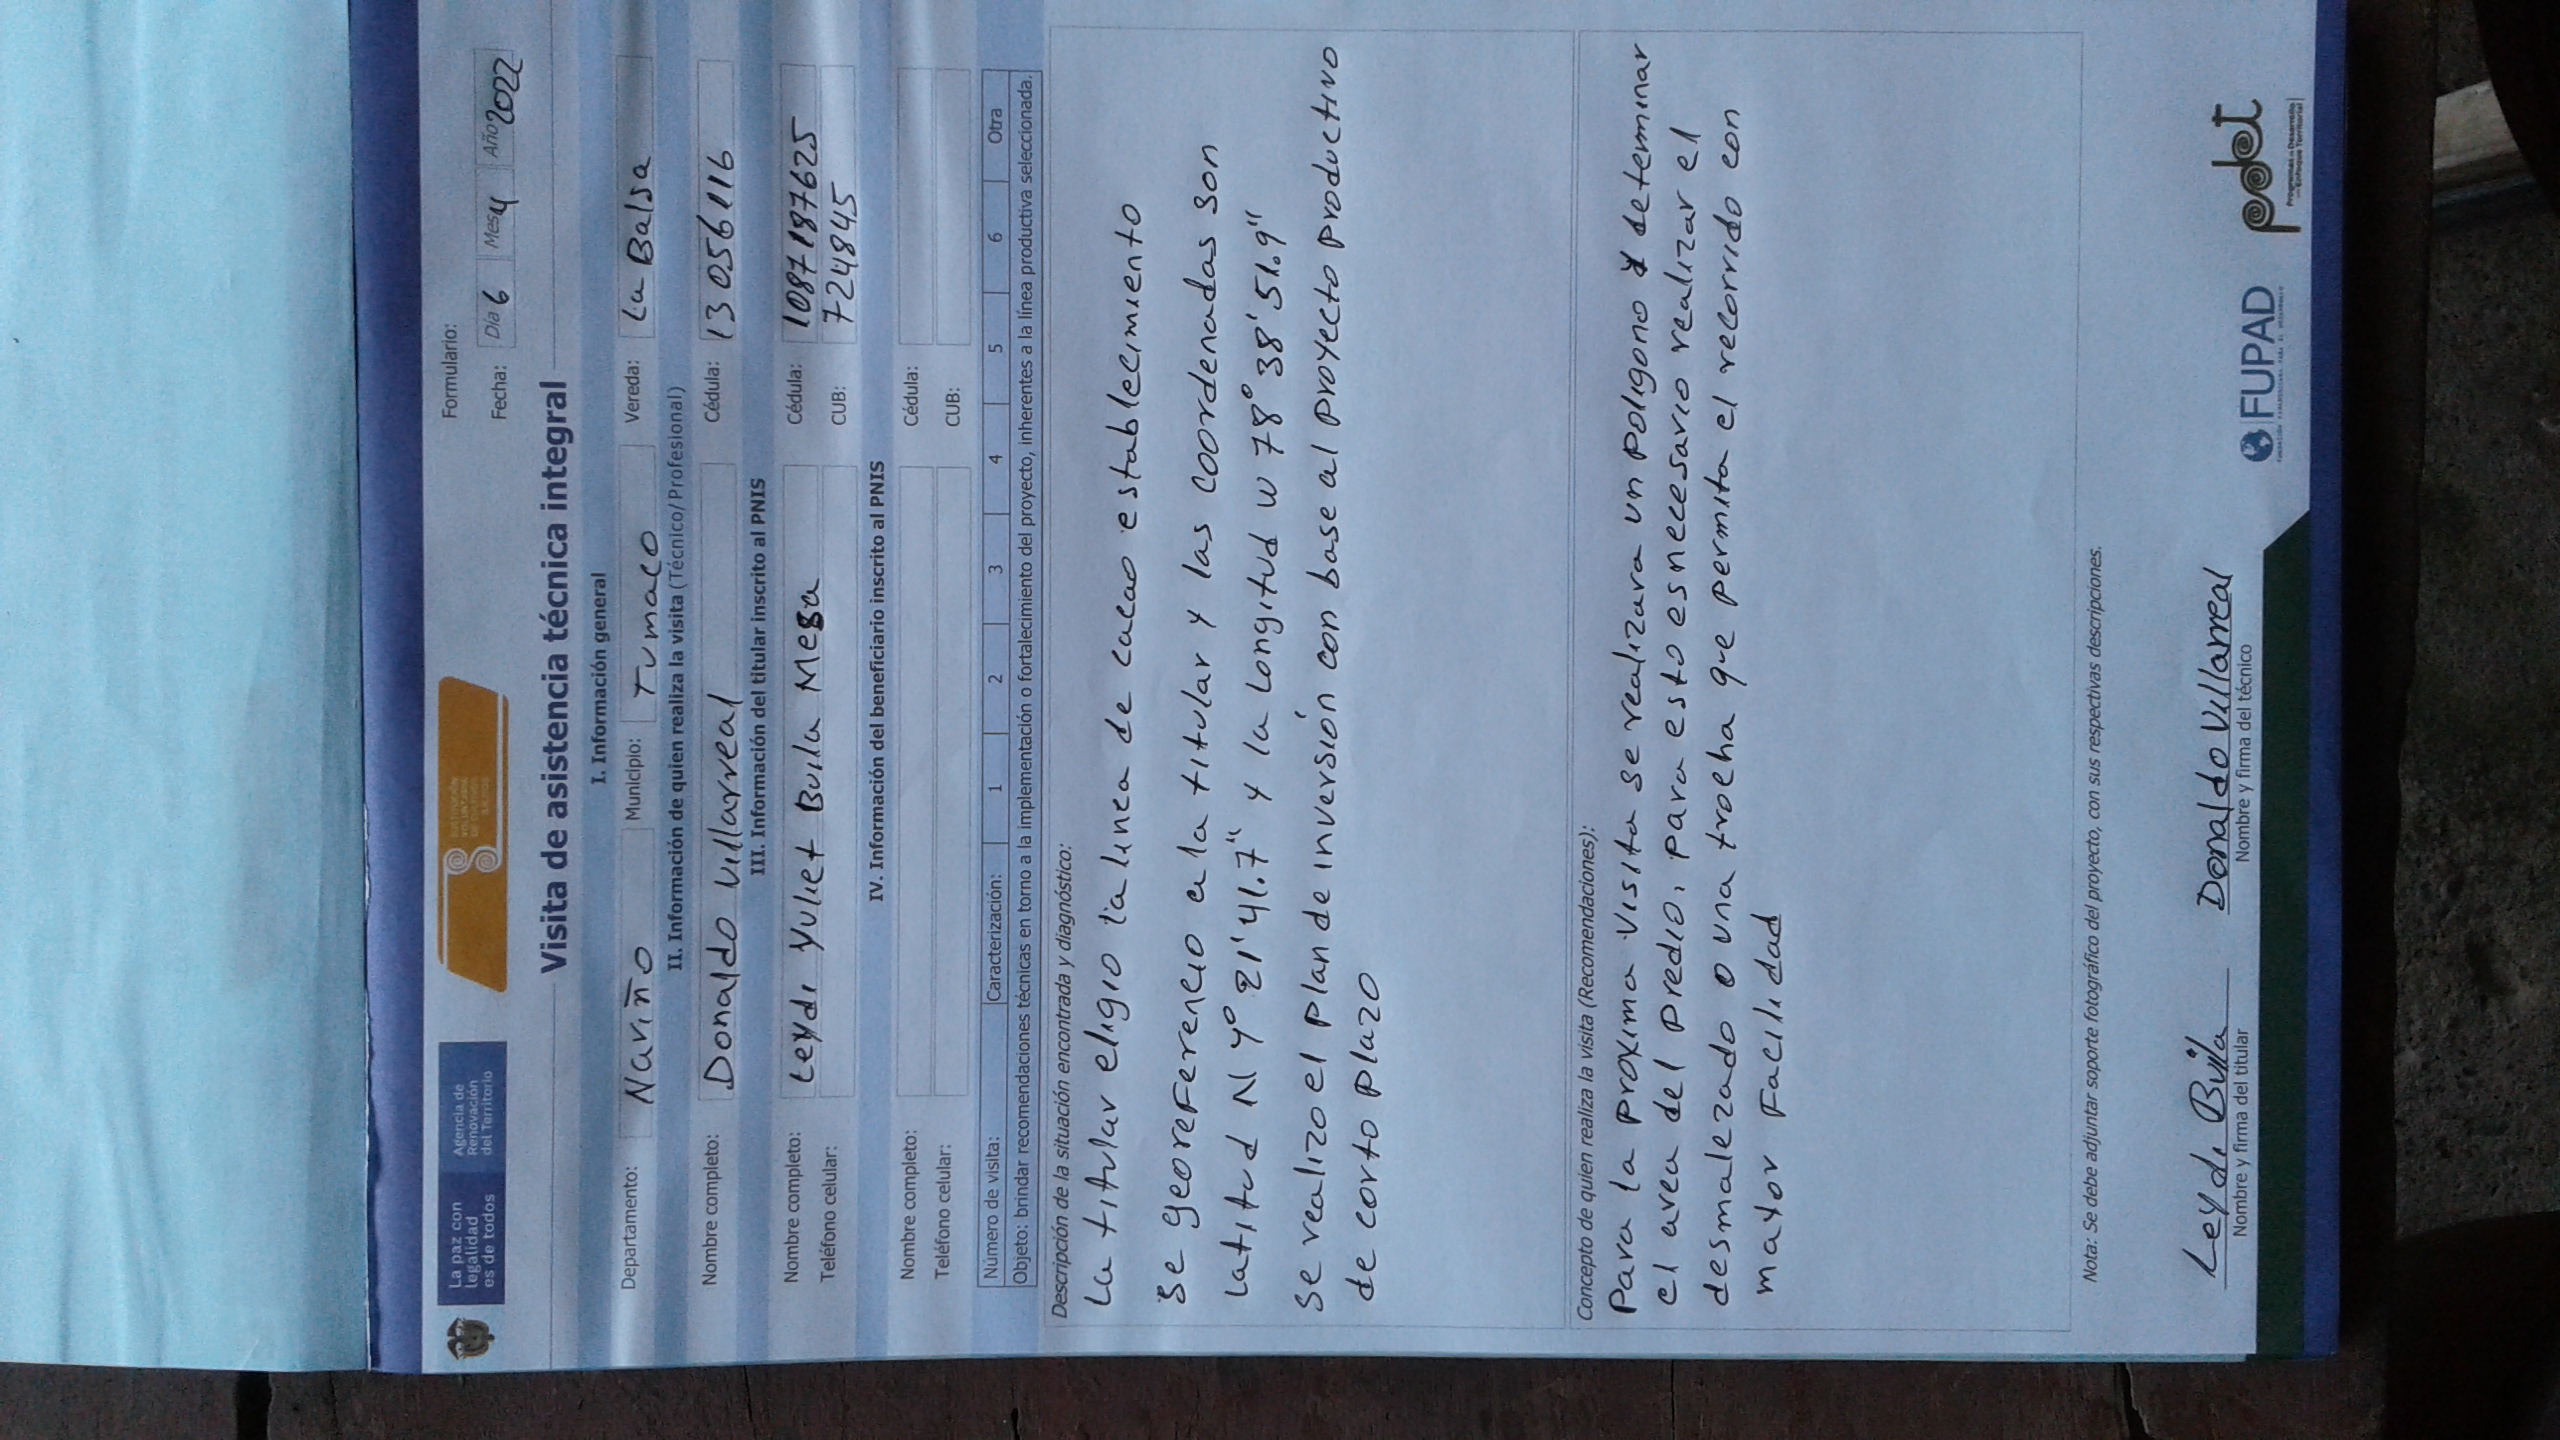 La paz con
legalidad
es de todos
Agencia de
Renovación
del Territorio
SUSTITUCIÓN
VOLUNTARIA
DE CULTIVOS
ILÍCITOS
Formulario:
Fecha: Día 6 Mes 4 Año 2022
Visita de asistencia técnica integral
I. Información general
Departamento: Nariño Municipio: Tumaco Vereda: La Balsa
II. Información de quien realiza la visita (Técnico/Profesional)
Nombre completo: Donaldo Villarreal Cédula: 13056116
III. Información del titular inscrito al PNIS
Nombre completo: Leydi Yuliet Buila Mesa Cédula: 1087187625
Teléfono celular: CUB: 724845
IV. Información del beneficiario inscrito al PNIS
Nombre completo: Cédula:
Teléfono celular: CUB:
Número de visita: Caracterización: 1 2 3 4 5 6 Otra
Objeto: brindar recomendaciones técnicas en torno a la implementación o fortalecimiento del proyecto, inherentes a la línea productiva seleccionada.
Descripción de la situación encontrada y diagnóstico:
La titular eligio la linea de cacao establecimiento
Se georeferencio a la titular y las coordenadas son
Latitud N 1° 21' 41.7" y la Longitud W 78° 38' 51.9"
Se realizo el plan de inversión con base al proyecto productivo
de corto plazo
Concepto de quien realiza la visita (Recomendaciones):
Para la proxima visita se realizara un poligono y determinar
el area del predio, para esto es necesario realizar el
desmalezado o una trocha que permita el recorrido con
mayor facilidad
Nota: Se debe adjuntar soporte fotográfico del proyecto, con sus respectivas descripciones.
Leydi Buila Donaldo Villarreal
Nombre y firma del titular Nombre y firma del técnico
FUPAD
FUNDACIÓN PANAMERICANA PARA EL DESARROLLO
pdet
Programas de Desarrollo
con Enfoque Territorial